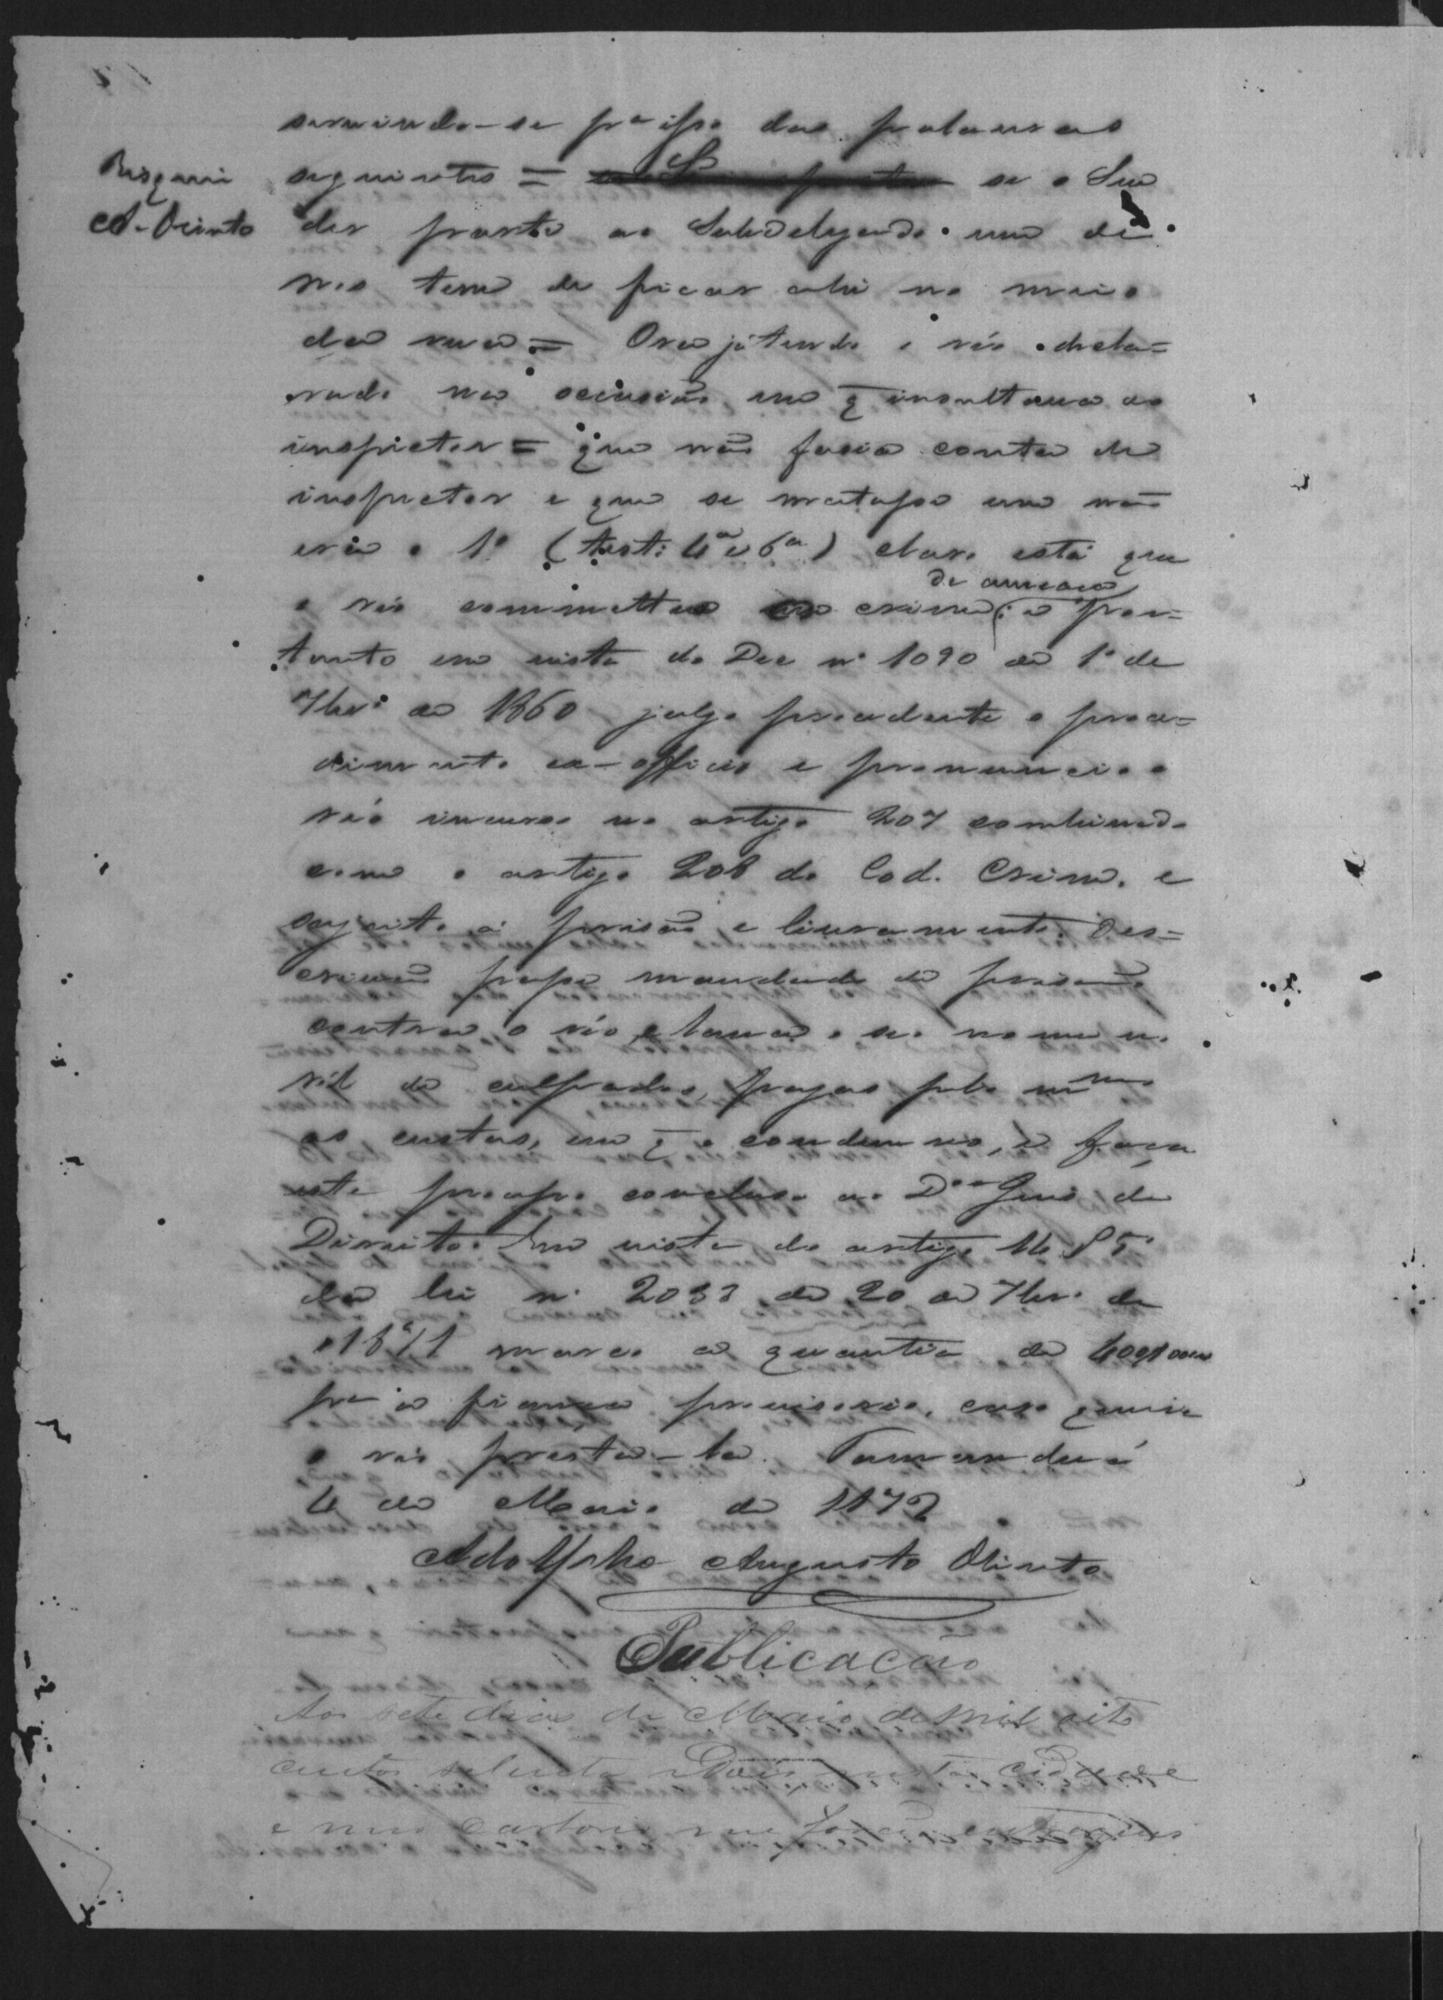 servindo-se pª isso das palavras
Risquei
A. Olinto
seguintes = se o Snr
der parte ao Subdelegado um de
nos tem de ficar ahi no meio
da rua = Ora, já tendo o réo decla=
rado na occasião em q̃ insultava ao
inspector = que não fasia conta de
inspector e que se matasse um não
era o 1º (test: 4ª e 6ª) claro está que
de ameaça
o réo commetteu crime; e por=
tanto em vista do Dec nº 1090 de 1º de
7brº de 1860 julgo procedente o proce=
dimento ex-officio e pronuncio o
réo incurso no artigo 207 combinado
com o artigo 208 do Cod. Crim. e
sujeito á prisão e livramento. O es=
crivão passe mandado de prisão
contra o réo, e lance o seo nome no
ról de culpados, pagas pelo mmo
as custas, em q̃ o condemno, e faça
este processo concluso ao Dor Juis de
Direito. Em vista do artigo 14 § 5º
da lei nº 2033 de 20 de 7brº de
1871 marco a quantia de 400$000
pª a fiança provisoria, caso queira
o réo presta-la. Tamanduá
4 de Maio de 1872
Adolpho Augusto Olinto
Publicacão
Aos sete dias de Maio de Mil oito
centos setenta e dois nesta cidade
e meu Cartorio me forão entregues